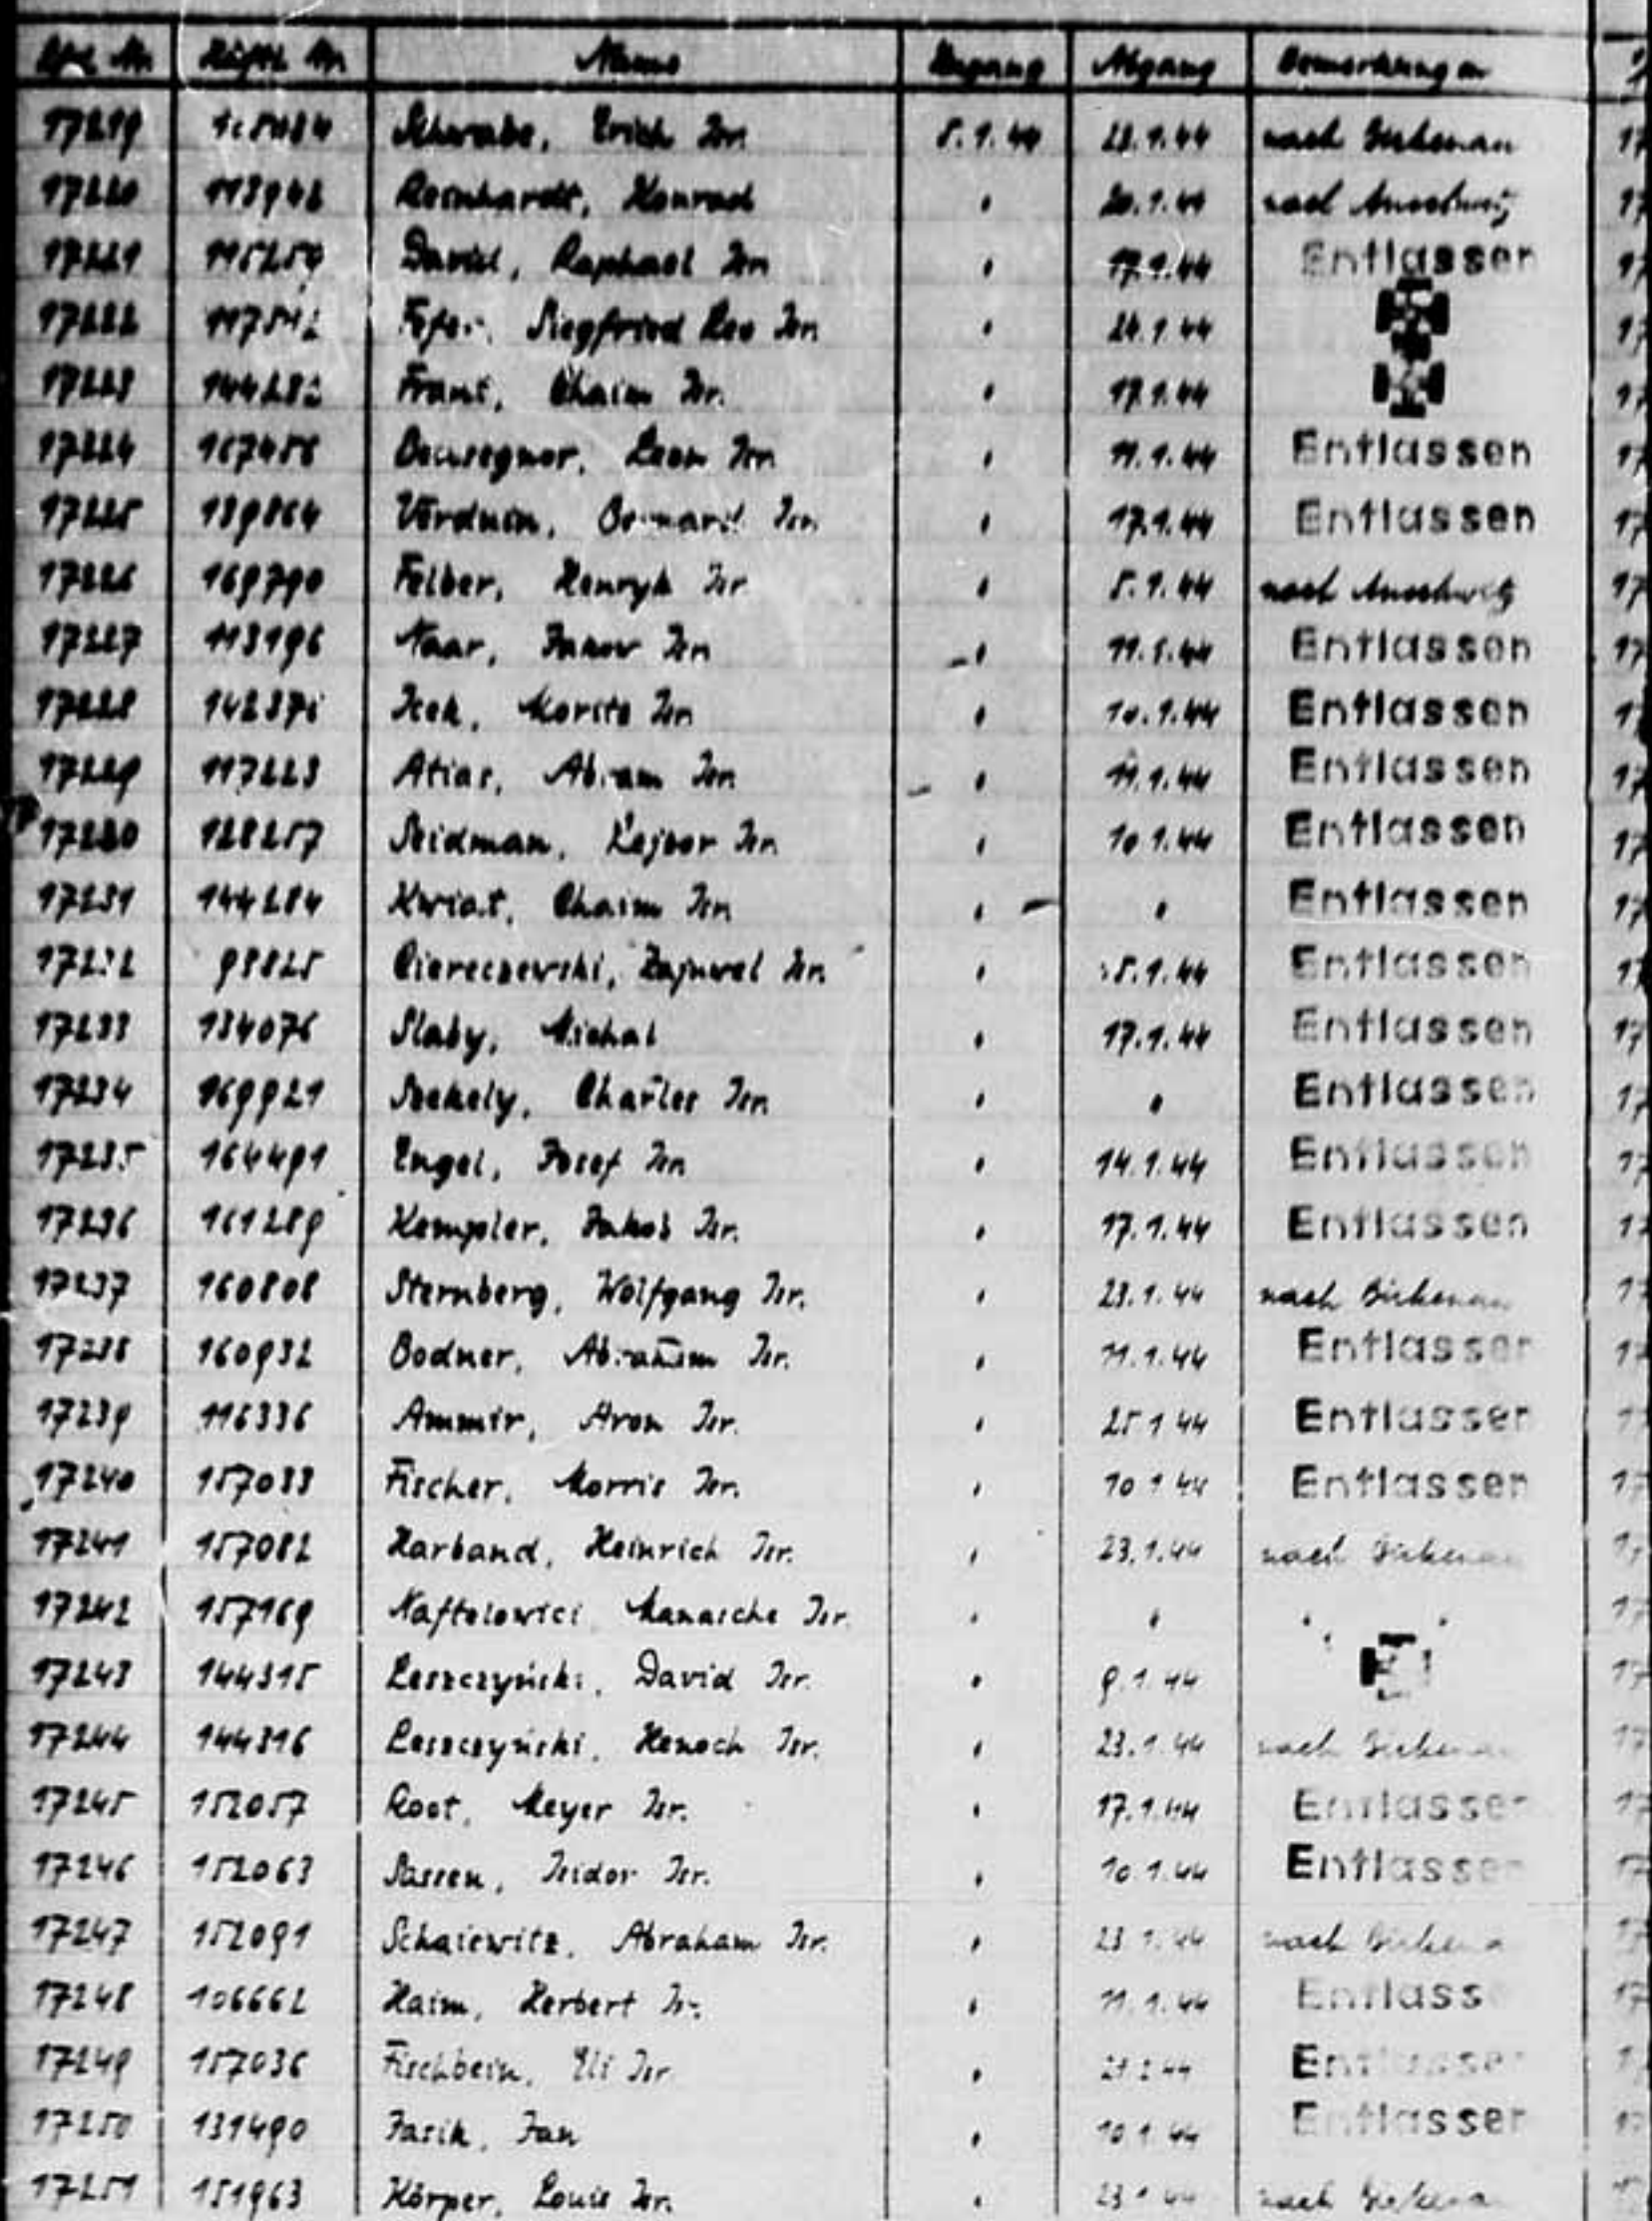 Lfd. Nr. Häftl. Nr. Name Zugang Abgang Bemerkungen
17219 Schwabe, Erich Isr. 5.1.44 23.1.44 nach Birkenau
17220 113942 Reinhardt, Konrad " 20.1.44 nach Auschwitz
17221 115259 David, Raphael Isr. " 17.1.44 Entlassen
17222 Siegfried Leo Isr. " 24.1.44
17223 144282 Franz, Chaim Isr. " 17.1.44
17224 167456 Leon Isr. " 11.1.44 Entlassen
17225 139864 Verduin, Bernard Isr. " 17.1.44 Entlassen
17226 169790 Felber, Henryk Isr. " 5.1.44 nach Auschwitz
17227 113196 Naar, Isr. " 11.1.44 Entlassen
17228 Icek, Moritz Isr. " 10.1.44 Entlassen
17229 117223 Atias, Abram Isr. " 11.1.44 Entlassen
17230 128257 Seidman, Lejbor Isr. " 10.1.44 Entlassen
17231 144284 Kwiat, Chaim Isr. " " Entlassen
17232 98825 Ciereczewski, Zajnwel Isr. " Entlassen
17233 134076 Slaby, Michal " 17.1.44 Entlassen
17234 169921 Szekely, Charles Isr. " " Entlassen
17235 164491 Engel, Josef Isr. " 14.1.44 Entlassen
17236 161289 Kempler, Jakob Isr. " 17.1.44 Entlassen
17237 160808 Sternberg, Wolfgang Isr. " 23.1.44 nach Birkenau
17238 160932 Bodner, Abraham Isr. " 11.1.44 Entlassen
17239 116336 Ammir, Aron Isr. " 25.1.44 Entlassen
17240 157033 Fischer, Morris Isr. " 10.1.44 Entlassen
17241 157082 Harband, Heinrich Isr. " 23.1.44 nach Birkenau
17242 157169 Naftolowici Manasche Isr. " " " "
17243 144315 Leszczyński, David Isr. " 9.1.44
17244 144316 Leszczyński, Henoch Isr. " 23.1.44 nach Birkenau
17245 152057 Root, Meyer Isr. " 17.1.44 Entlassen
17246 152063 Sassen, Isidor Isr. " 10.1.44 Entlassen
17247 152091 Schaiewitz, Abraham Isr. " 23.1.44 nach Birkenau
17248 106662 Haim, Herbert Isr. " 11.1.44 Entlassen
17249 157036 Fischbein, Eli Isr. " Entlassen
17250 131490 Jasik, Jan " 10.1.44 Entlassen
17251 151963 Körper, Louis Isr. " 23.1.44 nach Birkenau